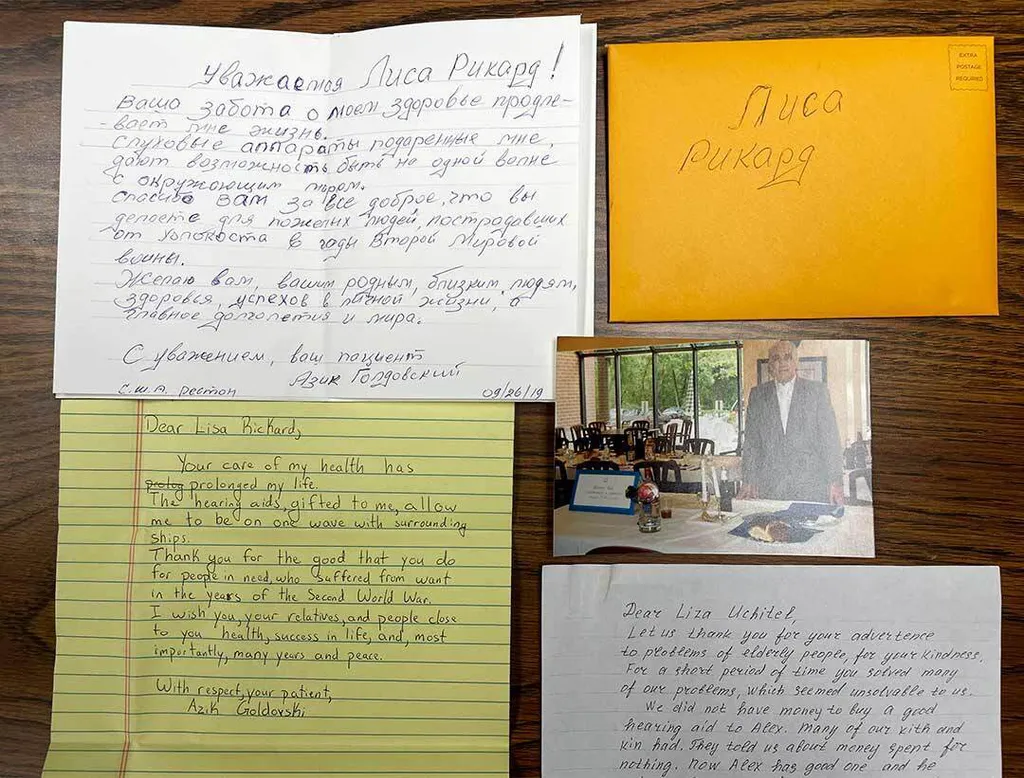 Уважаемая Лиса Рикард!
Ваша забота о моем здоровье продле-
-вает мне жизнь.
Слуховые аппараты подаренные мне,
дают возможность быть на одной волне
с окружающим миром.
Спасибо Вам за все доброе, что вы
делаете для пожилых людей, пострадавших
от в годы Второй Мировой
войны.
Желаю вам, вашим родным, близким людям,
здоровья, успехов в личной жизни, а
главное долголетия и мира.
С уважением, ваш пациент
Азик Голдовский
С.Ш.А. Рестон 09/26/19
Лиса
Рикард
EXTRA
POSTAGE
REQUIRED
Dear Lisa Rickard,
Your care of my health has
prolog prolonged my life.
The hearing aids, gifted to me, allow
me to be on one wave with surrounding
ships.
Thank you for the good that you do
for people in need, who suffered from want
in the years of the Second World War.
I wish you, your relatives, and people close
to you health, success in life, and, most
importantly, many years and peace.
With respect, your patient,
Azik Goldovski
Dear Liza Uchitel,
Let us thank you for your advertence
to problems of elderly people, for your kindness.
For a short period of time you solved many
of our problems, which seemed unsolvable to us.
We did not have money to buy a good
hearing aid to Alex. Many of our kith and
kin had. They told us about money spent for
nothing. Now Alex has good one and he